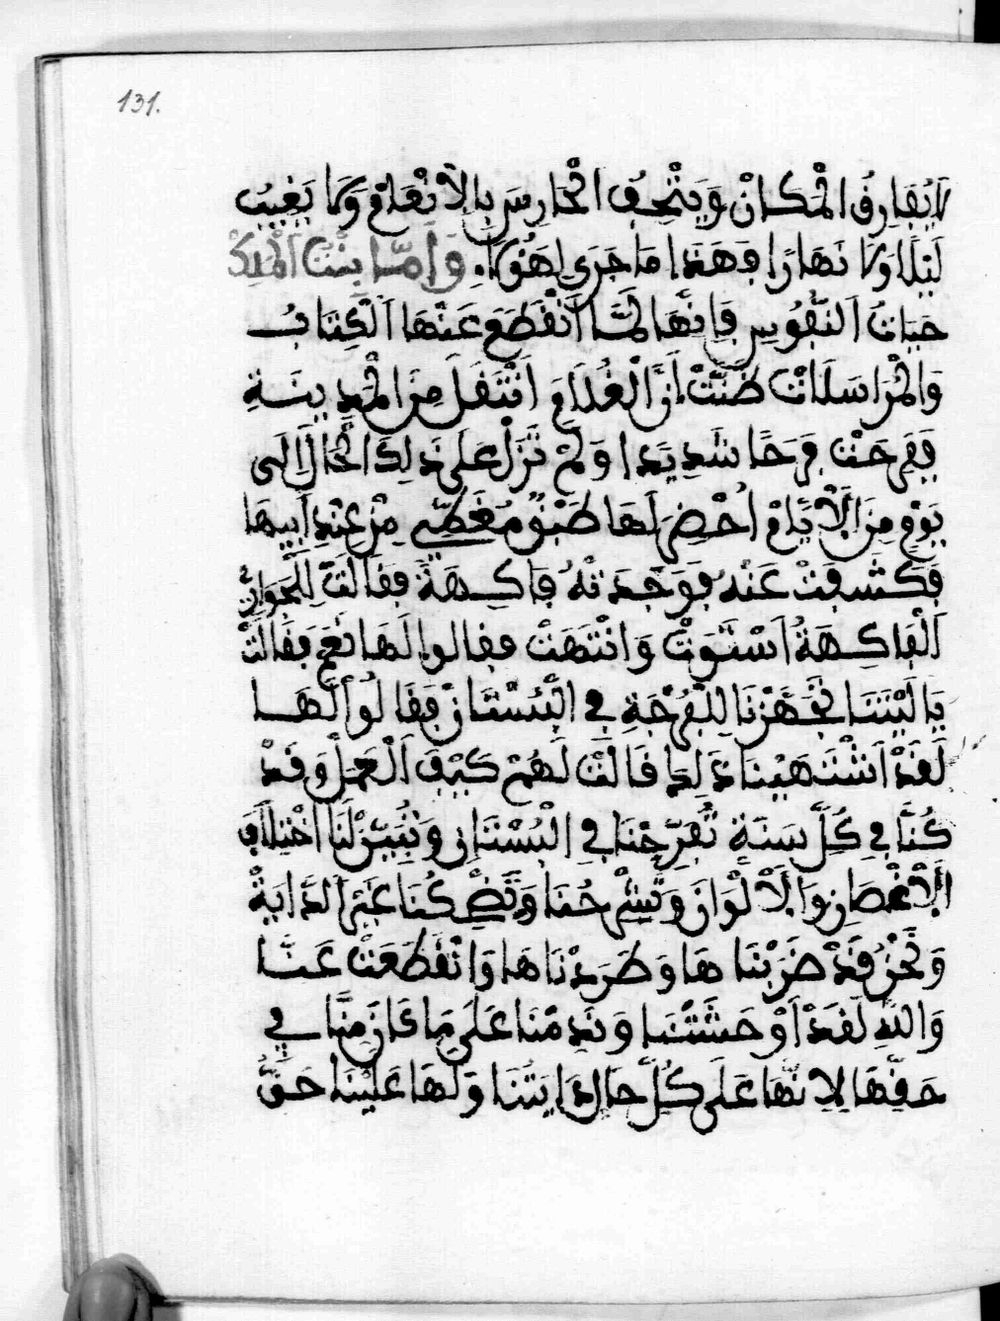 131.
لَا يُفَارِقُ الْمَكَانْ وَيَتْحِفُ الْحَارِسَ بِالْاَنْعَامْ وَلَا يَغِيبْ
لَيْلًا وَلَا نَهَارًا فَهَذَا مَا جَرَى لِهَؤُلَاءِ وَاَمَّا بِنْتُ الْمَلِكْ
حَيَاتُ النُّفُوسِ فَاِنَّهَا لَمَّا اَنْقَطَعَ عَنْهَا اَلْكِتَابُ
وَالْمُرَاسَلَاتْ ظَنَّتْ اَنَّ الْغُلَامَ اَنْتَقَلَ مِنَ الْمَدِينَةِ
فَفَرِحَتْ فَرَحًا شَدِيدَا وَلَمْ تَزَلْ عَلَى ذَلِكَ الْحَالْ اِلَى
يَوْمٍ مِنَ الْاَيَّامْ اُحْضِرَ لَهَا طَبَقٌ مُغَطِّي مِنْ عِنْدِ اَبِيهَا
فَكَشَفَتْ عَنْهُ فَوَجَدَتْهُ فَاكِهَةً فَقَالَتْ لِلْجَوَارْ
اَلْفَاكِهَةُ اَسْتَوَتْ وَانْتَهَتْ فقالوا لَهَا نَعَمْ فَقَالَتْ
يَا لَيْتَنَا نَجَهَزْنَا لِلْفُرْجَةِ فِي الْبُسْتَانْ فَقَالُوا لَهَا
لَقَدْ اَشْتَهَيْنَا ذَلِكَ قَالَتْ لَهُمْ كَيْفَ اَلْعَمَلْ وَقَدْ
كُنَّا فِي كُلِّ سَنَةٍ تُفَرِّجْنَا فِي الْبُسْتَانِ وَتُبَيِّنْ لَنَا اخْتِلَافَ
الْاَغْصَانِ وَالْاَلْوَانْ وَتَشْرِحُنَا وَتُضْحِكُنَا غَيْرَ الدَّايَةْ
وَنَحْنُ قَدْ ضَرَبْنَا هَا وَطَرَدْنَاهَا وَانْقَطَعَتْ عَنَّا
وَاللهِ لَقَدْ اَوْحَشَتْنَا وَنَدِمْنَا عَلَى مَا كَانَ مِنَّا فِي
حَقِّهَا لِاَنَّهَا عَلَى كُلِّ حَالْ دَايَتُنَا وَلَهَا عَلَيْنَا حَقُّ